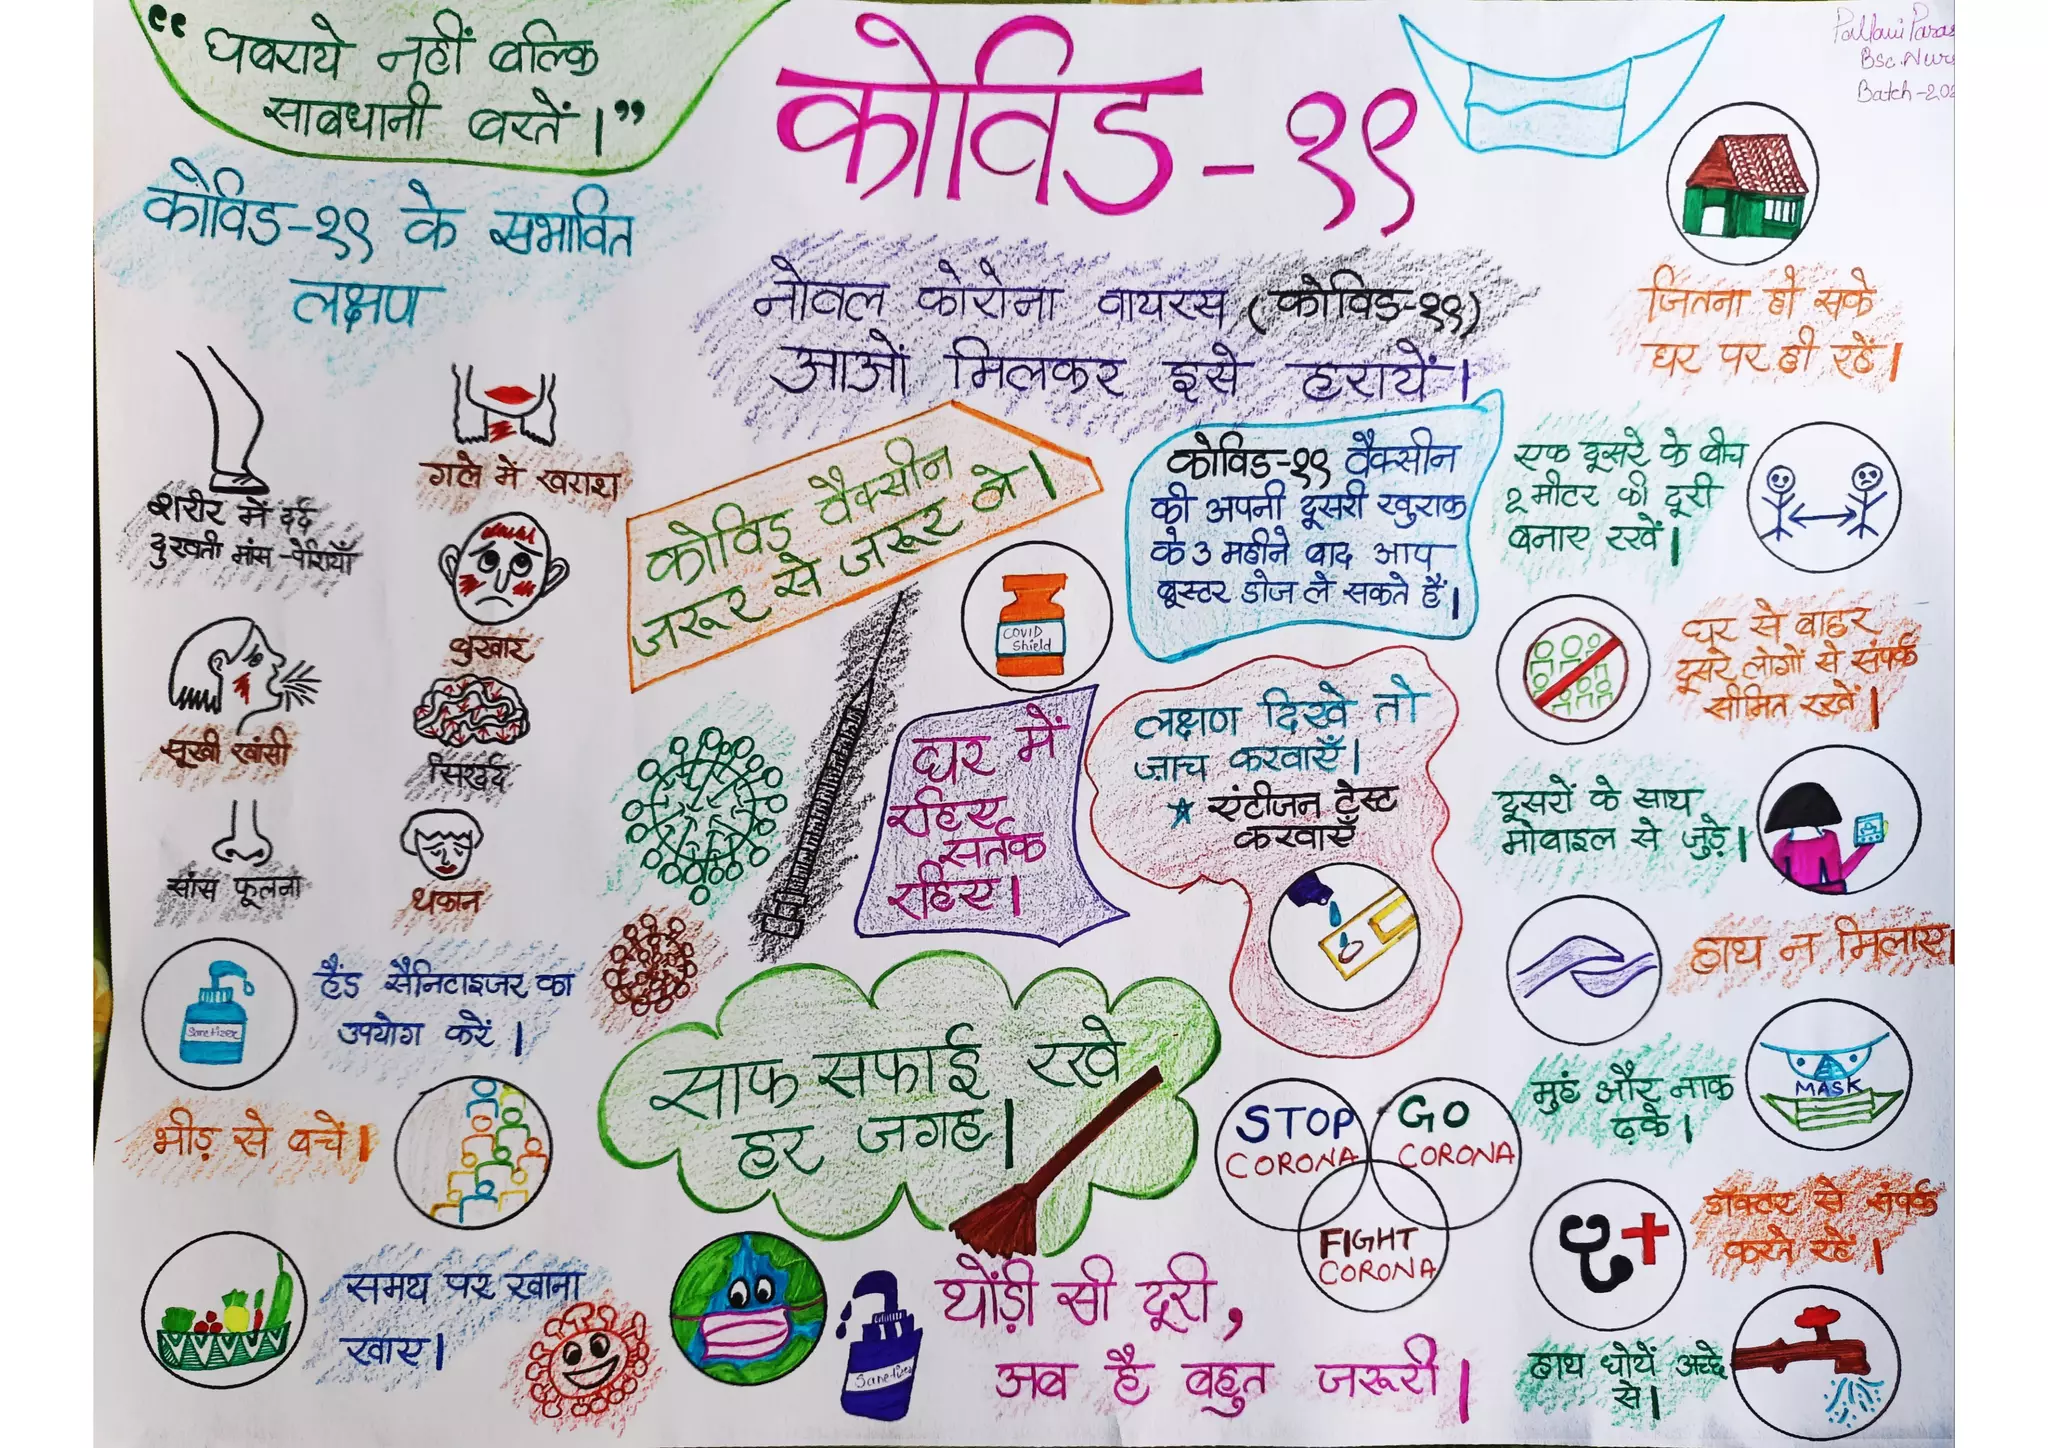 “ घबराये नहीं बल्कि
सावधानी बरतें।”
कोविड-१९
Bsc.Nurs
Batch-202
कोविड-१९ के सभावित
लक्षण
नोवल कोरोना वायरस (कोविड-१९)
आओं मिलकर इसे हरायें।
जितना हो सके
घर पर ही रहें।
शरीर में दर्द
दुखती मांस-पेशियाँ
गले में खराश
बुखार
सूखी खांसी
सिरदर्द
सांस फूलना
थकान
कोविड वैक्सीन
जरूर से जरूर ले।
COVID
Shield
कोविड-१९ वैक्सीन
की अपनी दूसरी खुराक
के 3 महीने बाद आप
बूस्टर डोज ले सकते हैं।
एक दूसरे के बीच
२ मीटर की दूरी
बनाए रखें।
घर से बाहर
दूसरे लोगों से संपर्क
सीमित रखें।
घर में
रहिए
सर्तक
रहिए।
लक्षण दिखे तो
जा़च करवाएँ।
★ एंटीजन टेस्ट
करवाएँ
दूसरों के साथ
मोबाइल से जुड़े।
हाथ न मिलाए।
हैंड सैनिटाइजर का
उपयोग करें।
Sanetizer
भीड़ से बचें।
साफ सफाई रखे
हर जगह।
STOP
CORONA
GO
CORONA
FIGHT
CORONA
मुहं और नाक
ढ़के।
MASK
डाक्टर से संपर्क
करते रहे।
समय पर खाना
खाए।
Sanetizer
थोंड़ी सी दूरी,
अब है बहुत जरूरी।
हाथ धोयें अच्छे
से।